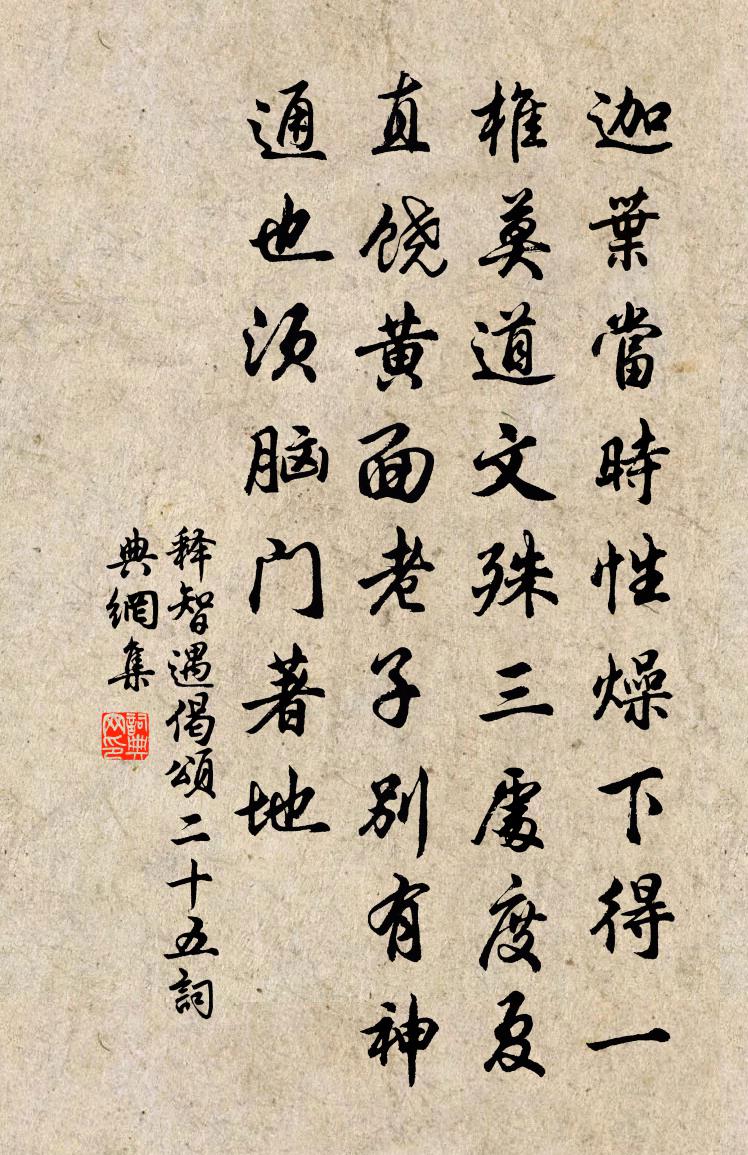 迦葉當時性燥下得一
椎莫道文殊三處度夏
直饶黄面老子别有神
通也须脑门著地
释智遇偈頌二十五詞
典網集
詞典网印